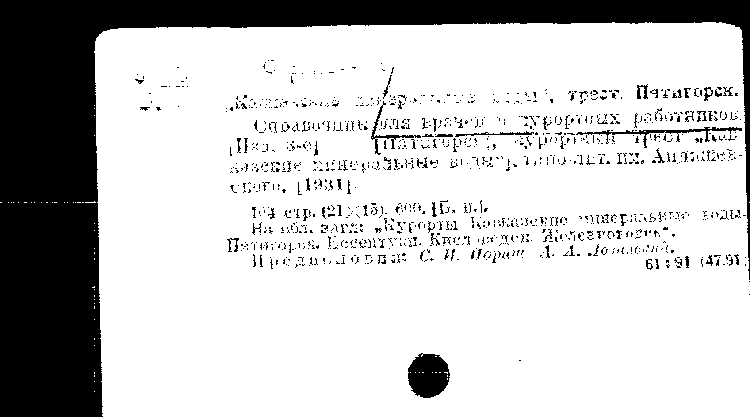 „Кавказские минеральные воды“, трест. Пятигорск.
Справочник для врачей и курортных работников
[Изд. 3-е] [Пятигорск], курортный трест „Кав-
казские минеральные воды“, типо-лит. им. Анджиев-
ского, [1931].
164 стр. (21×15). 600. [Б. ц.].
На обл. загл: „Курорты Кавказские минеральные воды.
Пятигорск. Ессентуки. Кисловодск. Железноводск“.
Предисловия: С. И. А. А.
61:91 (47.91)